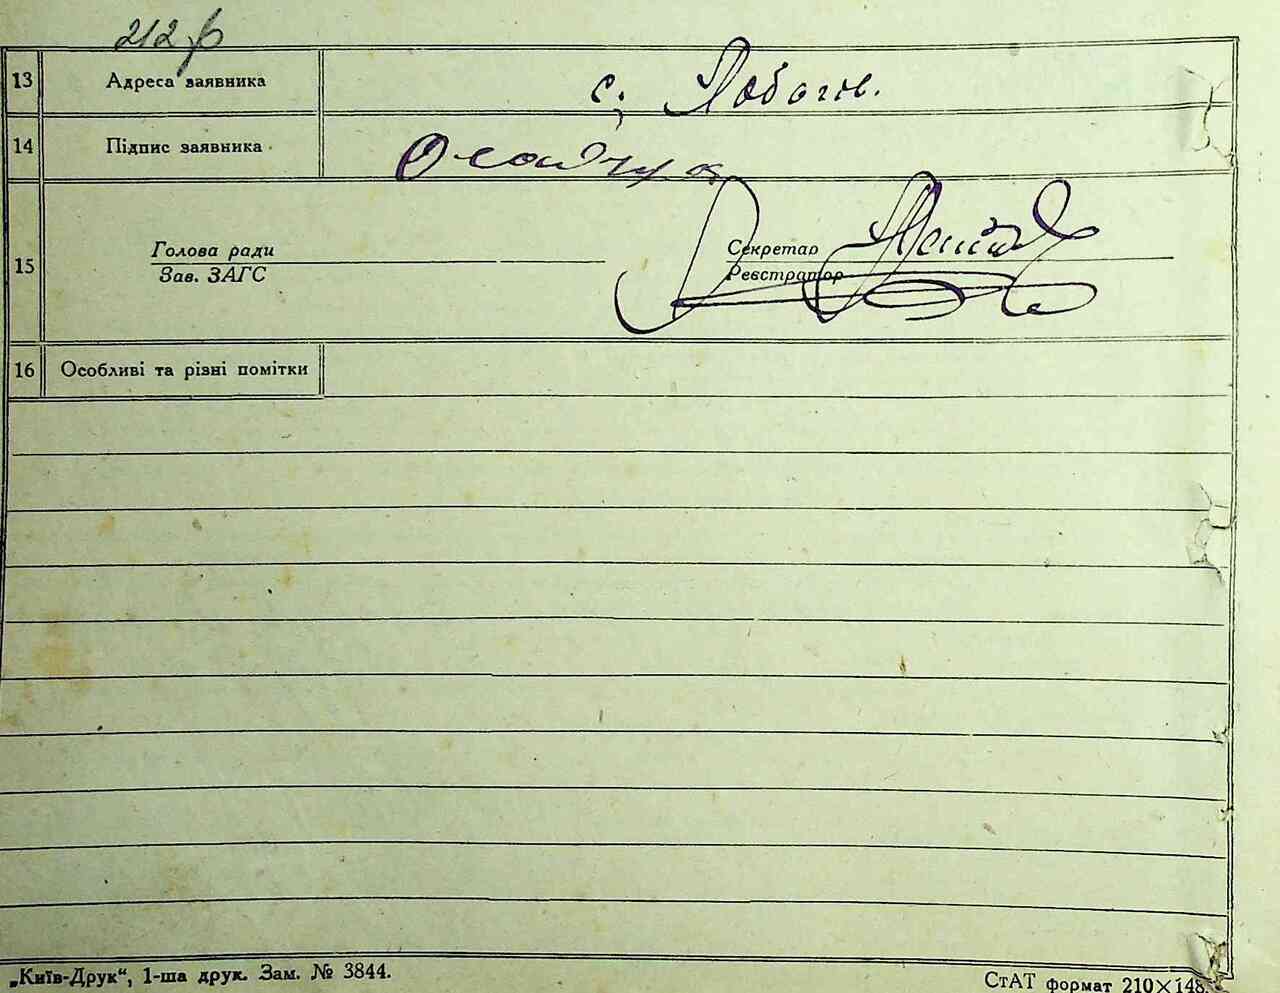 212
13 Адреса заявника с.
14 Підпис заявника
15 Голова ради Секретар
Зав. ЗАГС Реєстратор
16 Особливі та різні помітки
„Київ-Друк“, 1-ша друк. Зам. № 3844.
СтАТ формат 210×148.